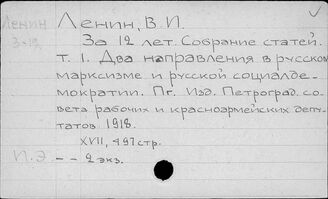 Ленин Ленин, В. И.
З-12 За 12 лет. Собрание статей.
т. 1. Два направления в русском
марксизме и русской социалде-
мократии. Пг. Изд. Петроград. со-
вета рабочих и красноармейских депу-
татов 1918.
XVII, 497 стр.
И.Э. – – 2 экз.